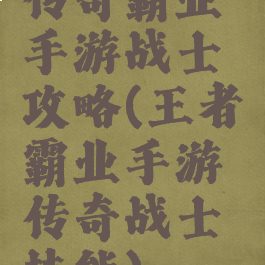 传奇霸业
手游战士
攻略(王者
霸业手游
传奇战士
技能)